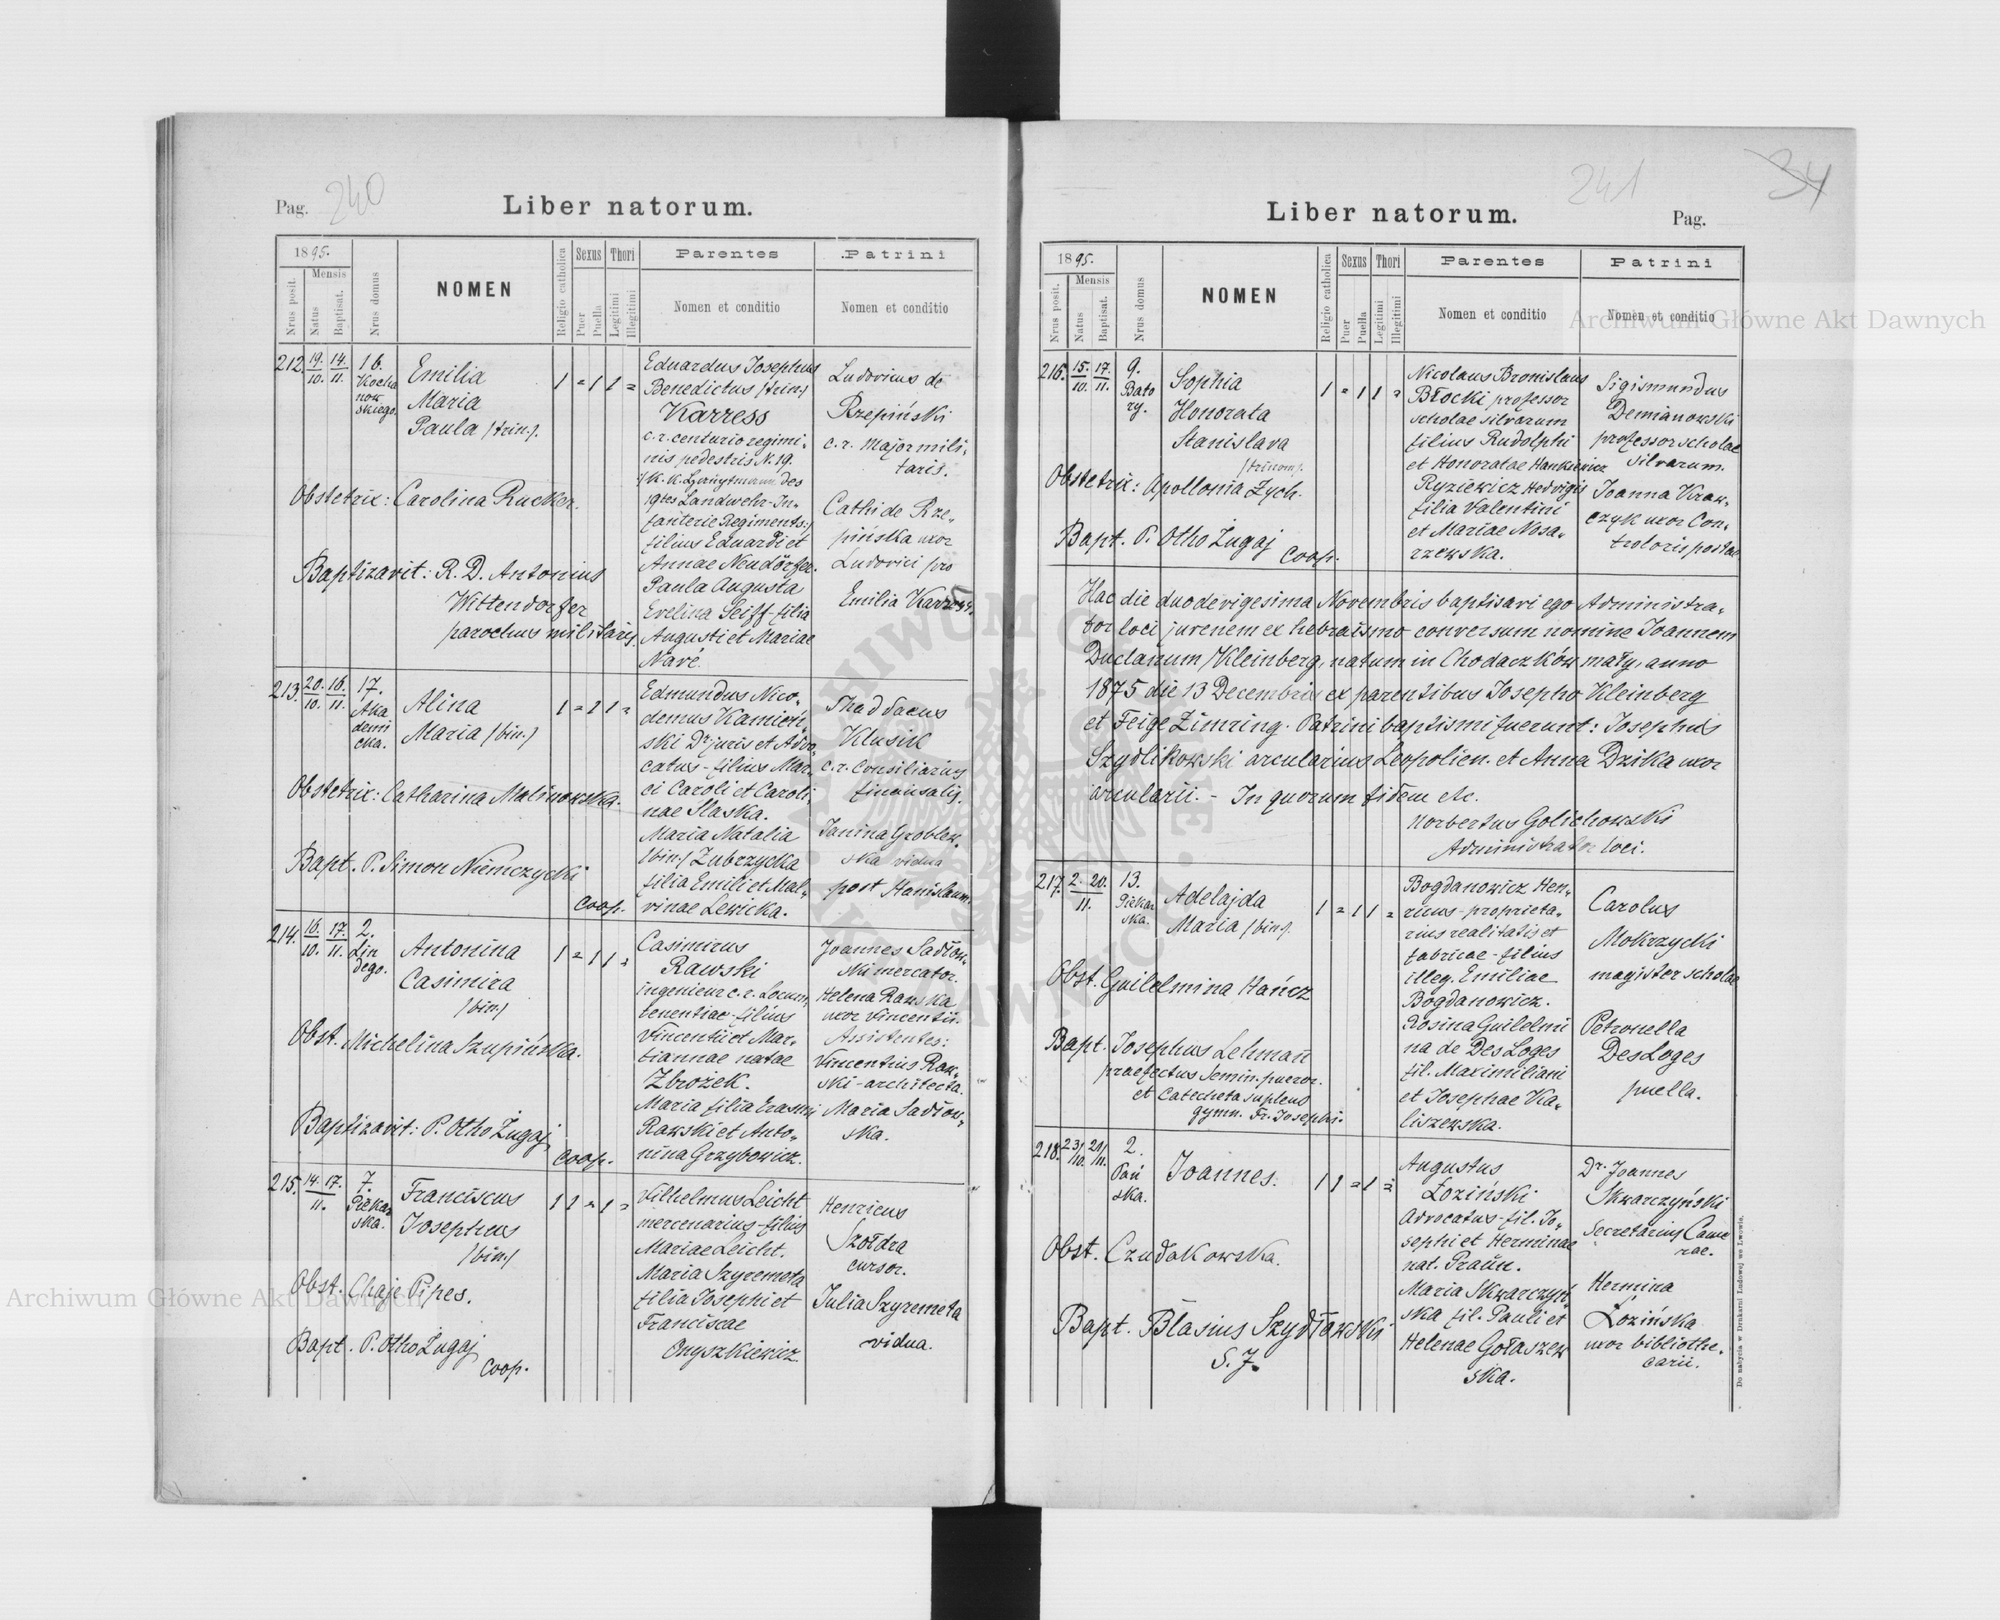 Pag. 240
Liber natorum.
1895.
Nrus posit.
Mensis
Natus
Baptisat.
Nrus domus
NOMEN
Religio catholica
Sexus
Puer
Puella
Thori
Legitimi
Illegitimi
Parentes
Nomen et conditio
Patrini
Nomen et conditio
212. 19./10. 14./11. 16.
Kocha
now
skiego.
Emilia
Maria
Paula /trin./.
1 = 1 1 =
Eduardus Josephus
Benedictus /trin./
Karress
c.r. centurio regimi-
nis pedestris N. 19.
des
19tes Landwehr-In-
fanterie Regiments:/
filius Eduardi et
Annae Neudörfer.
Paula Augusta
Evelina Seiff-filia
Augusti et Mariae
Navé.
Ludovicus de
Rzepiński
c.r. Major mili-
taris.
Cath: de Rze-
pińska uxor
Ludovici pro
Emilia Karress.
Obstetrix: Carolina Rucker.
Baptizavit: R. D. Antonius
Wittendorfer
parochus militaris.
213. 20./10. 16./11. 17.
Aka
demi
cka.
Alina
Maria /bin./
1 = 1 1 =
Edmundus Nico-
demus Kamień-
ski Dr. juris et Advo-
catus - filius Mar-
ci Caroli et Caroli-
nae Slaska.
Maria Natalia
/bin./ Zubrzycka
filia Emili et Mal-
vinae Lewicka.
Thaddaeus
Klusik
c.r. Consiliarius
financialis.
Janina Groblew-
ska vidua
post Stanislaum.
Obstetrix: Catharina Malinowska.
Bapt. P. Simon Niemczycki
coop.
214. 16./10. 17./11. 2.
Lin
dego.
Antonina
Casimira
/bin./
1 = 1 1 =
Casimirus
Rawski
ingenieur c.r. Locum-
tenentiae-filius
Vincentii et Mar-
tiannae natae
Zbrożek.
Maria filia Erasmi
Rawski et Anto-
nina Grzybowicz.
Joannes Sadłow-
ski mercator.
Helena Rawska
uxor Vincentii.
Assistentes:
Vincentius Raw-
ski-architecta.
Maria Sadłow-
ska.
Obst. Michelina Szupińska.
Baptizavit: P. Otho Żugaj,
coop.
215. 14. 17./11. 7.
Piekar
ska.
Franciscus
Josephus
/bin/
1 1 = 1 =
Vilhelmus Leicht
mercenarius-filius
Mariae Leicht.
Maria Szyremeta
filia Josephi et
Franciscae
Onyszkiewicz.
Henricus
Szołdra
cursor.
Julia Szyremeta
vidua.
Obst. Chaje Pipes.
Bapt. P. Otho Żugaj
coop.
241
34
Liber natorum.
Pag.
1895.
Nrus posit.
Mensis
Natus
Baptisat.
Nrus domus
NOMEN
Religio catholica
Sexus
Puer
Puella
Thori
Legitimi
Illegitimi
Parentes
Nomen et conditio
Patrini
Nomen et conditio
216. 15./10. 17./11. 9.
Bato
ry.
Sophia
Honorata
Stanislava
/trinom/.
1 = 1 1 =
Nicolaus Bronislaus
Błocki professor
scholae silvarum
filius Rudolphi
et Honoratae Hankiewicz
Ryziewicz Hedvigis
filia Valentini
et Mariae Nosa-
rzewska.
Sigismundus
Demianowski
professor scholae
silvarum.
Joanna Kraw-
czyk uxor Con-
troloris postae.
Obstetrix: Apollonia Zych.
Bapt. P. Otho Żugaj
coop.
Hac die duodevigesima Novembris baptisavi ego Administra-
tor loci juvenem ex hebraismo conversum nomine Joannem
Duclanum /Kleinberg, natum in Chodaczków mały, anno
1875 die 13 Decembris ex parentibus Josepho Kleinberg
et Feige Zimring. Patrini baptismi fuerunt: Josephus
Szydlikowski arcularius Leopolien. et Anna Dzika uxor
arcularii. - In quorum fidem etc.
Norbertus Golichowski
Administrator loci.
217. 2. 20./11. 13.
Piekar
ska.
Adelajda
Maria /bin/.
1 = 1 1 =
Bogdanowicz Hen-
ricus-proprieta-
rius realitatis et
fabricae-filius
illeg. Emiliae
Bogdanowicz.
Rosina Guilelmi
na de Des Loges
fil. Maximiliani
et Josephae Ka-
liszewska.
Carolus
Mokrzycki
magister scholae
Petronella
DesLoges
puella.
Obst. Guilelmina Hańcz
Bapt. Josephus Lehmann
praefectus Semin. pueror.
et Catecheta supleus
gymn. Fr. Josephi.
218. 23/10. 20/11. 2.
Pań
ska.
Joannes.
1 1 = 1 =
Augustus
Łoziński
Advocatus-fil. Jo-
sephi et Herminae
nat. Praun.
Maria Skwarczyń-
ska fil. Pauli et
Helenae Gołaszew
ska.
Dr. Joannes
Skwarczyński
Secretarius Came
rae.
Hermina
Łozińska
uxor bibliothe-
carii.
Obst. Czudakowska.
Bapt. Blasius Szydłowski
S. J.
Do nabycia w Drukarni Ludowej we Lwowie.
Archiwum Główne Akt Dawnych
Archiwum Główne Akt Dawnych